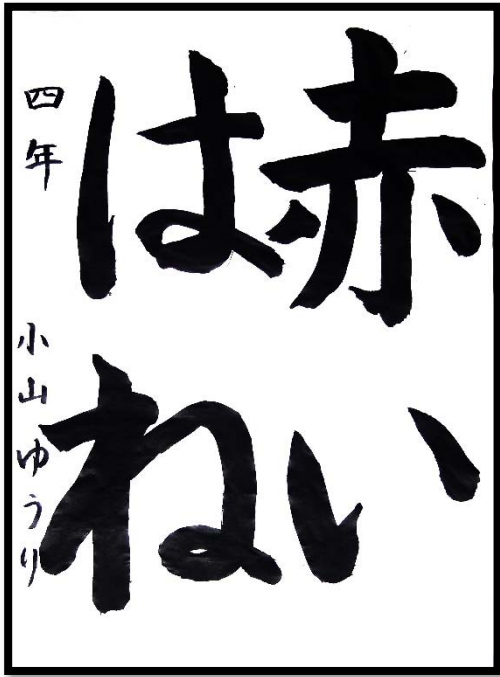 赤い
はね
四年 小山ゆうり